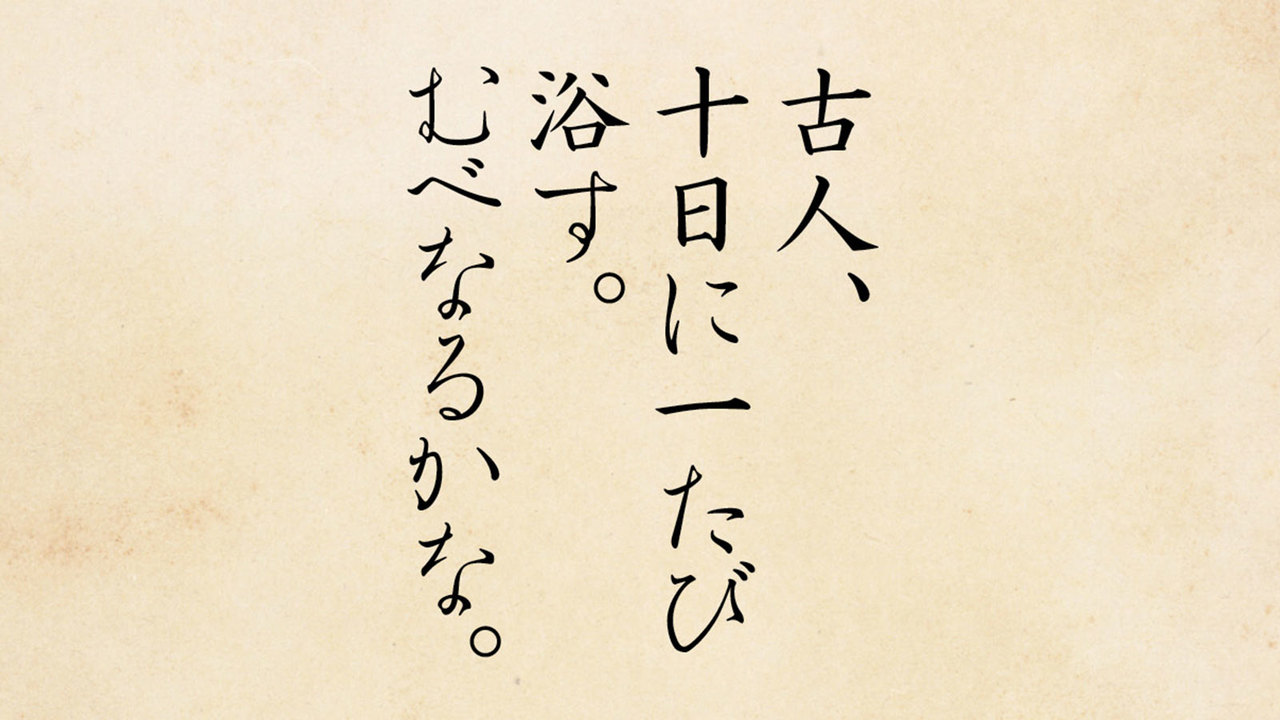 古人、
十日に一たび
浴す。
むべなるかな。